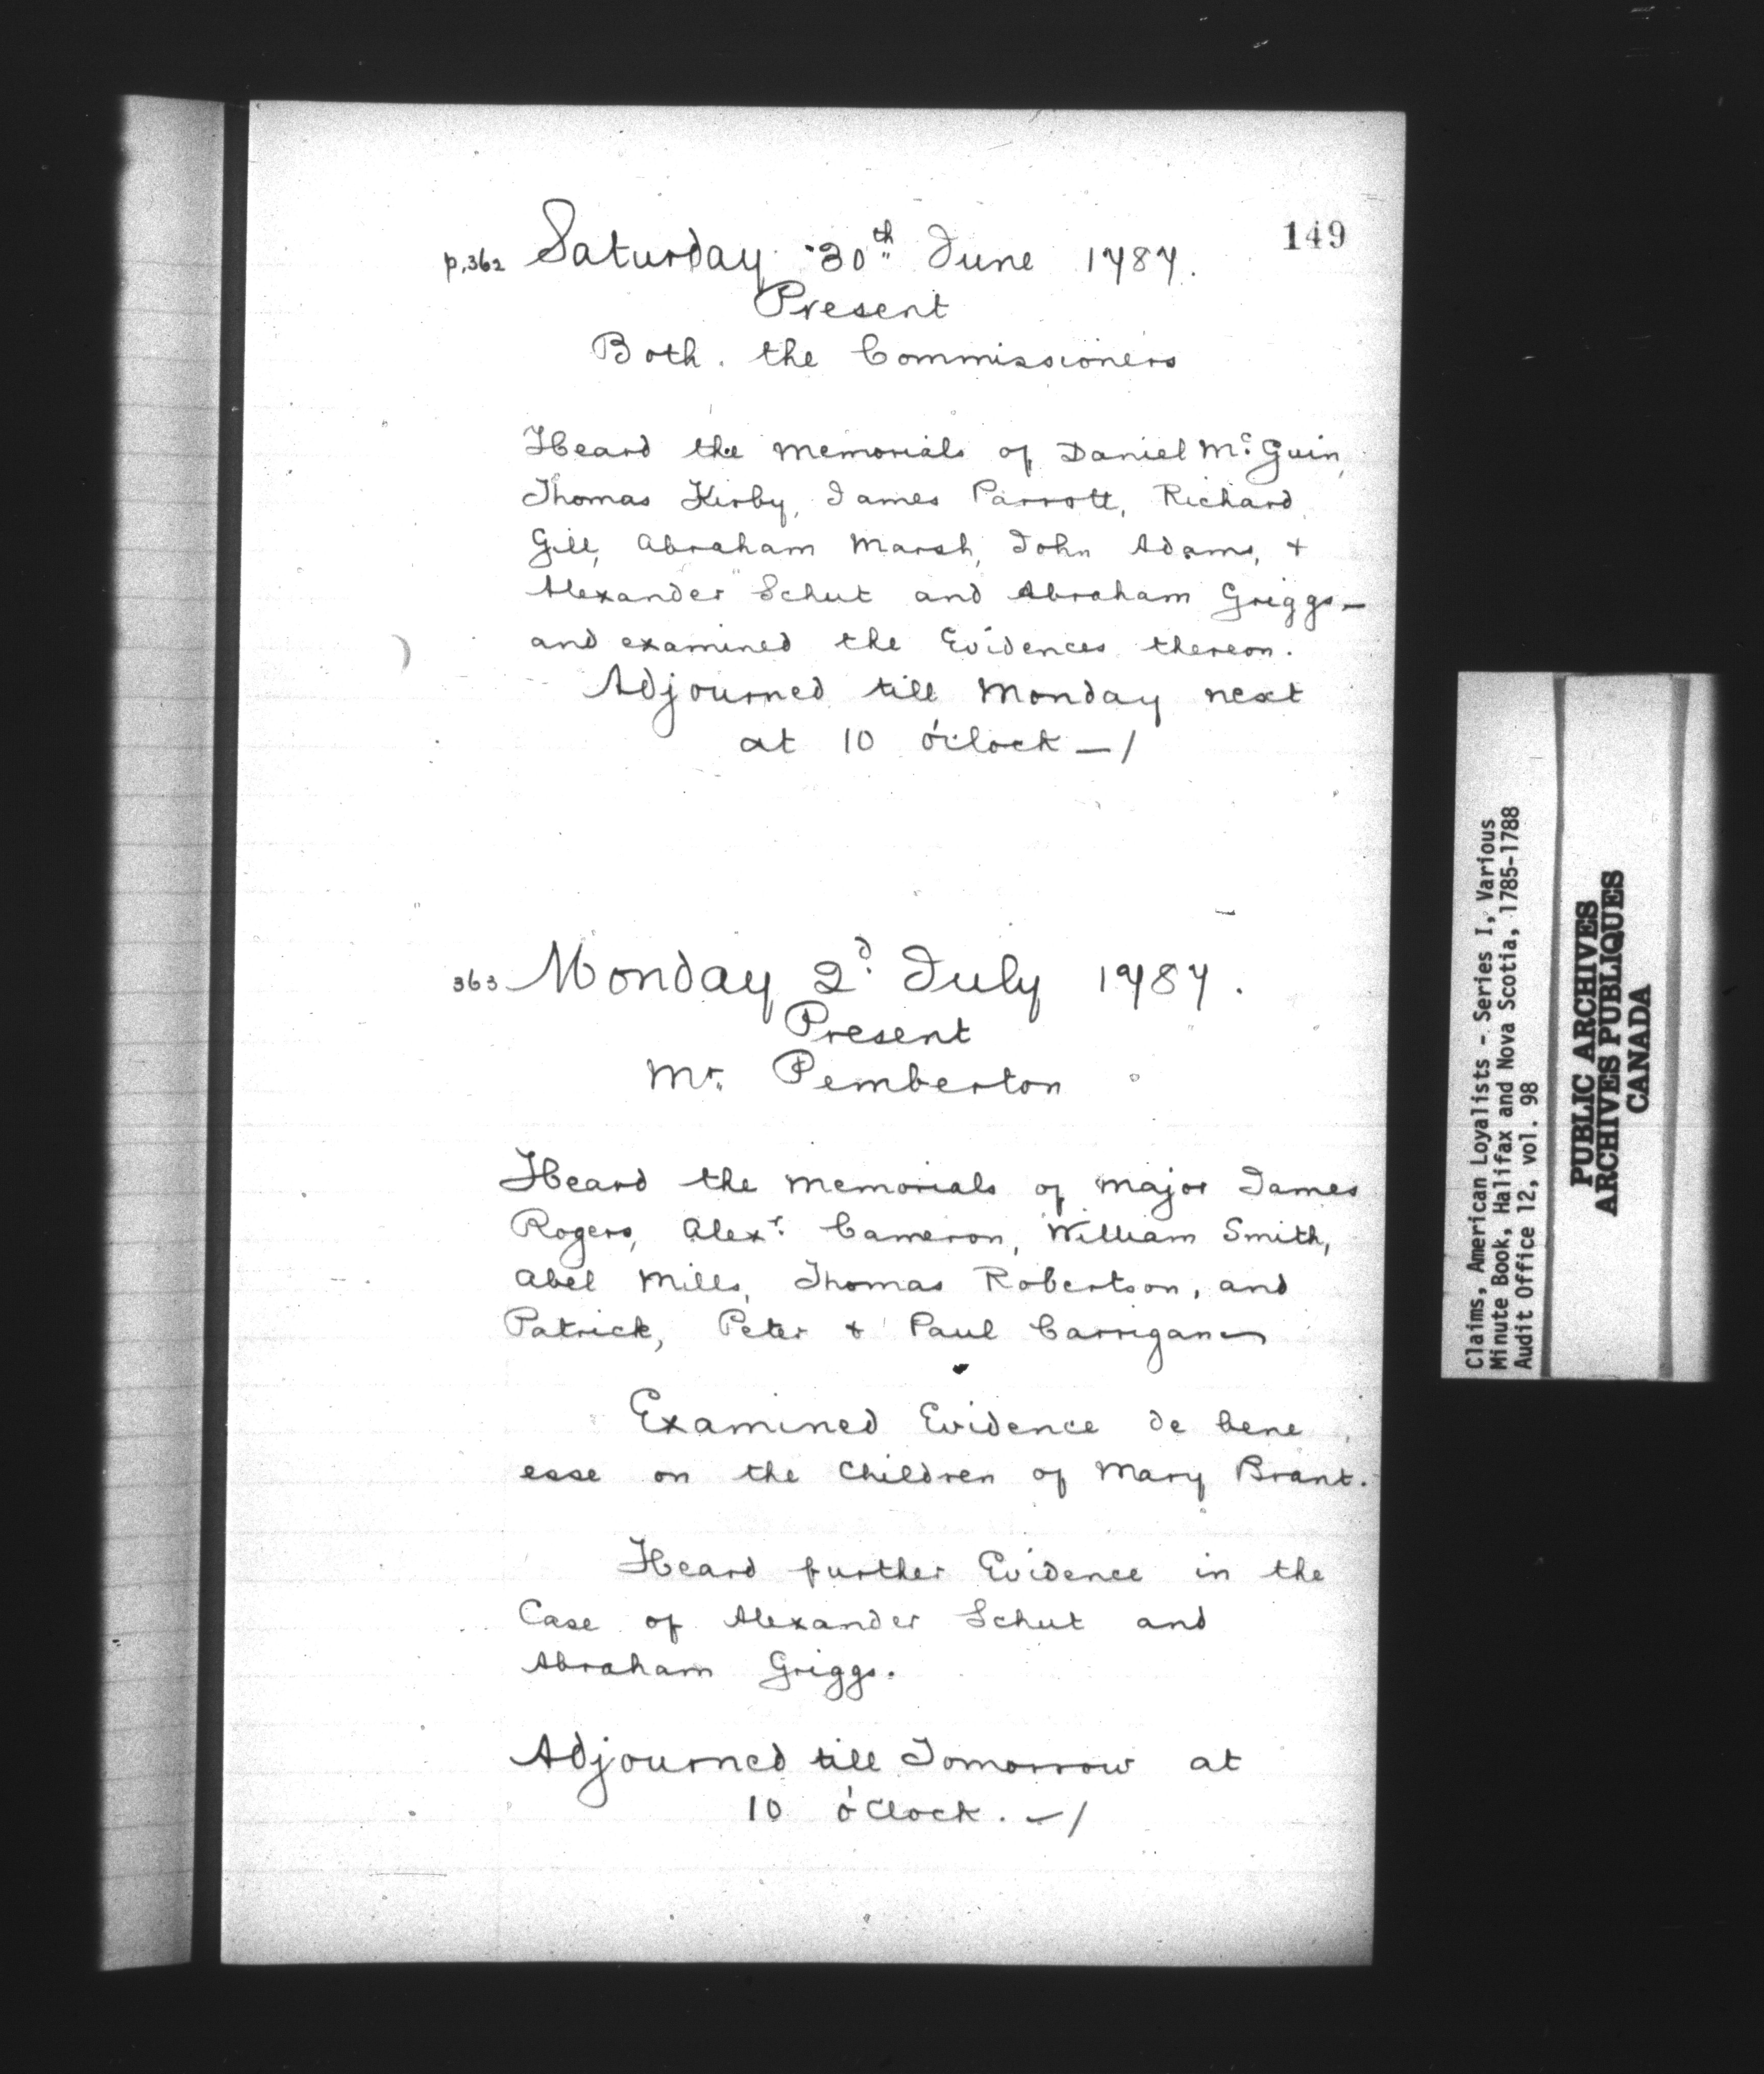 149
p.362 Saturday 30th June 1787.
Present
Both the Commissioners
Heard the Memorials of Daniel Mc Guin,
Thomas Kirby, James Parrott, Richard
Gill, Abraham Marsh, John Adams, +
Alexander Schut and Abraham Griggs —
and examined the Evidences thereon.
Adjourned till Monday next
at 10 o'Clock —/
363 Monday 2d July 1787.
Present
Mr. Pemberton
Heard the Memorials of Major James
Rogers, Alexr. Cameron, William Smith,
Abel Mills, Thomas Robertson, and
Patrick, Peter + Paul Carrigan
Examined Evidence de bene
esse on the Children of Mary Brant.
Heard further Evidence in the
Case of Alexander Schut and
Abraham Griggs.
Adjourned till Tomorrow at
10 o'Clock. —/
Claims, American Loyalists - Series I, Various
Minute Book, Halifax and Nova Scotia, 1785-1788
Audit Office 12, vol. 98
PUBLIC ARCHIVES
ARCHIVES PUBLIQUES
CANADA